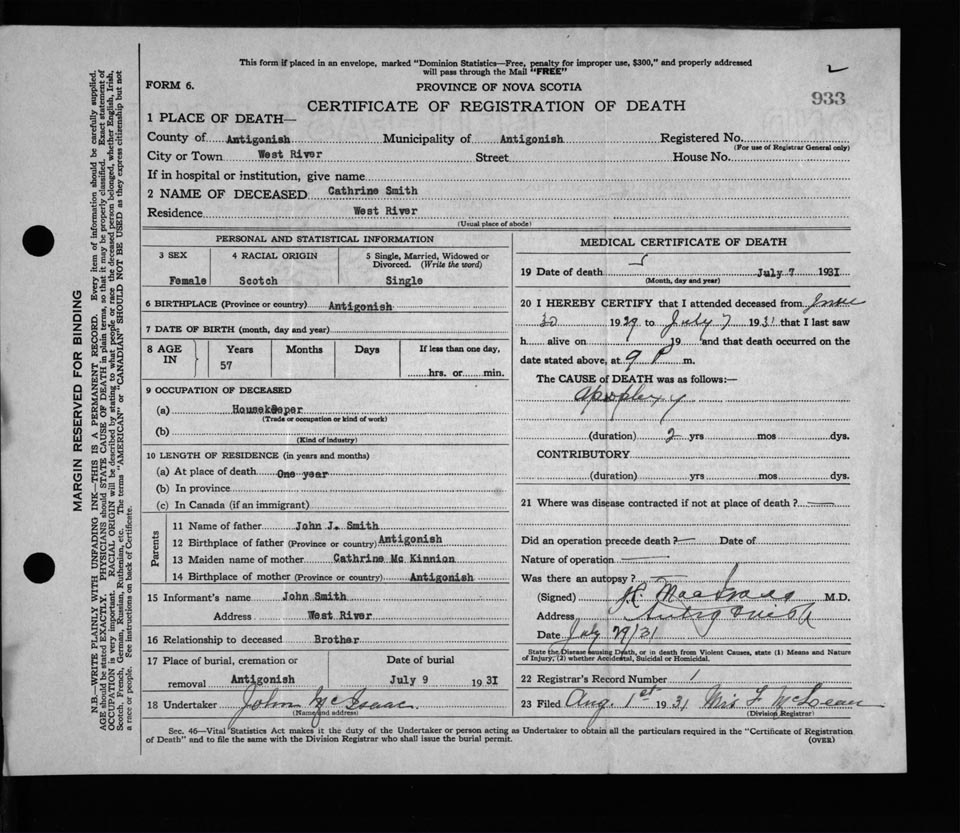 This form if placed in an envelope, marked "Dominion Statistics—Free, penalty for improper use, $300," and properly addressed
will pass through the Mail "FREE"
2
FORM 6.
PROVINCE OF NOVA SCOTIA
933
CERTIFICATE OF REGISTRATION OF DEATH
1 PLACE OF DEATH—
County of Antigonish Municipality of Antigonish Registered No.
(For use of Registrar General only)
City or Town West River Street House No.
If in hospital or institution, give name
2 NAME OF DECEASED Cathrine Smith
Residence West River
(Usual place of abode)
PERSONAL AND STATISTICAL INFORMATION
3 SEX 4 RACIAL ORIGIN 5 Single, Married, Widowed or
Divorced. (Write the word)
Female Scotch Single
6 BIRTHPLACE (Province or country) Antigonish
7 DATE OF BIRTH (month, day and year)
8 AGE IN Years Months Days If less than one day,
57 hrs. or min.
9 OCCUPATION OF DECEASED
(a) Housekeeper
(Trade or occupation or kind of work)
(b)
(Kind of industry)
10 LENGTH OF RESIDENCE (in years and months)
(a) At place of death One year
(b) In province
(c) In Canada (if an immigrant)
Parents
11 Name of father John J. Smith
12 Birthplace of father (Province or country) Antigonish
13 Maiden name of mother Cathrine Mc Kinnion
14 Birthplace of mother (Province or country) Antigonish
15 Informant's name John Smith
Address West River
16 Relationship to deceased Brother
17 Place of burial, cremation or Date of burial
removal Antigonish July 9 1931
18 Undertaker John McIsaac
(Name and address)
MEDICAL CERTIFICATE OF DEATH
19 Date of death July 7 1931
(Month, day and year)
20 I HEREBY CERTIFY that I attended deceased from June
30 1929 to July 7 1931 that I last saw
h alive on 19 and that death occurred on the
date stated above, at 9 P m.
The CAUSE of DEATH was as follows:—
apoplexy
(duration) 2 yrs mos dys.
CONTRIBUTORY
(duration) yrs mos dys.
21 Where was disease contracted if not at place of death ?
Did an operation precede death ? Date of
Nature of operation
Was there an autopsy ?
(Signed) M.D.
Address Antigonish
Date July 29/31
State the Disease causing Death, or in death from Violent Causes, state (1) Means and Nature
of Injury, (2) whether Accidental, Suicidal or Homicidal.
22 Registrar's Record Number 1
23 Filed Aug. 1st 1931 Mrs F McLean
(Division Registrar)
Sec. 46—Vital Statistics Act makes it the duty of the Undertaker or person acting as Undertaker to obtain all the particulars required in the "Certificate of Registration
of Death" and to file the same with the Division Registrar who shall issue the burial permit. (OVER)
MARGIN RESERVED FOR BINDING
N.B.—WRITE PLAINLY WITH UNFADING INK—THIS IS A PERMANENT RECORD. Every item of information should be carefully supplied.
AGE should be stated EXACTLY. PHYSICIANS should STATE CAUSE OF DEATH in plain terms, so that it may be properly classified. Exact statement of
OCCUPATION is very important. RACIAL ORIGIN will be described by stating to what people or race the deceased person belonged, whether English, Irish,
Scotch, French, German, Russian, Ruthenian, etc. The terms "AMERICAN" or "CANADIAN" SHOULD NOT BE USED as they express citizenship but not
a race or people. See instructions on back of Certificate.